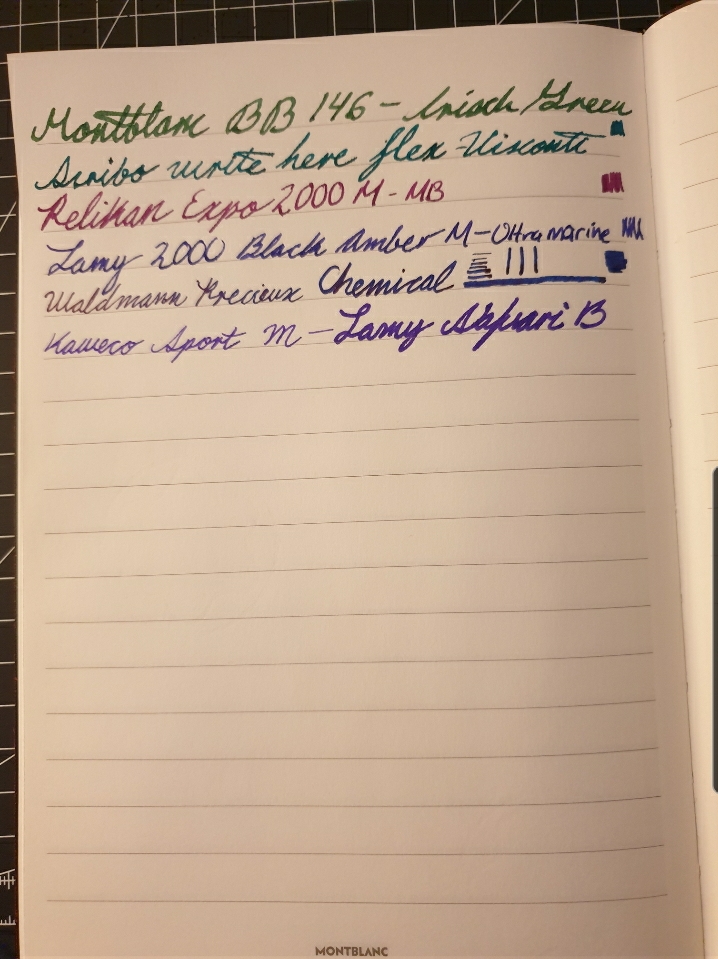 Montblanc BB 146 - Irish Green
Scribo write here flex - Visconti
Pelikan Expo 2000 M - MB
Lamy 2000 Black Amber M - Ultramarine
Waldmann Precieux Chemical
Kaweco Sport M - Lamy Safari B
MONTBLANC